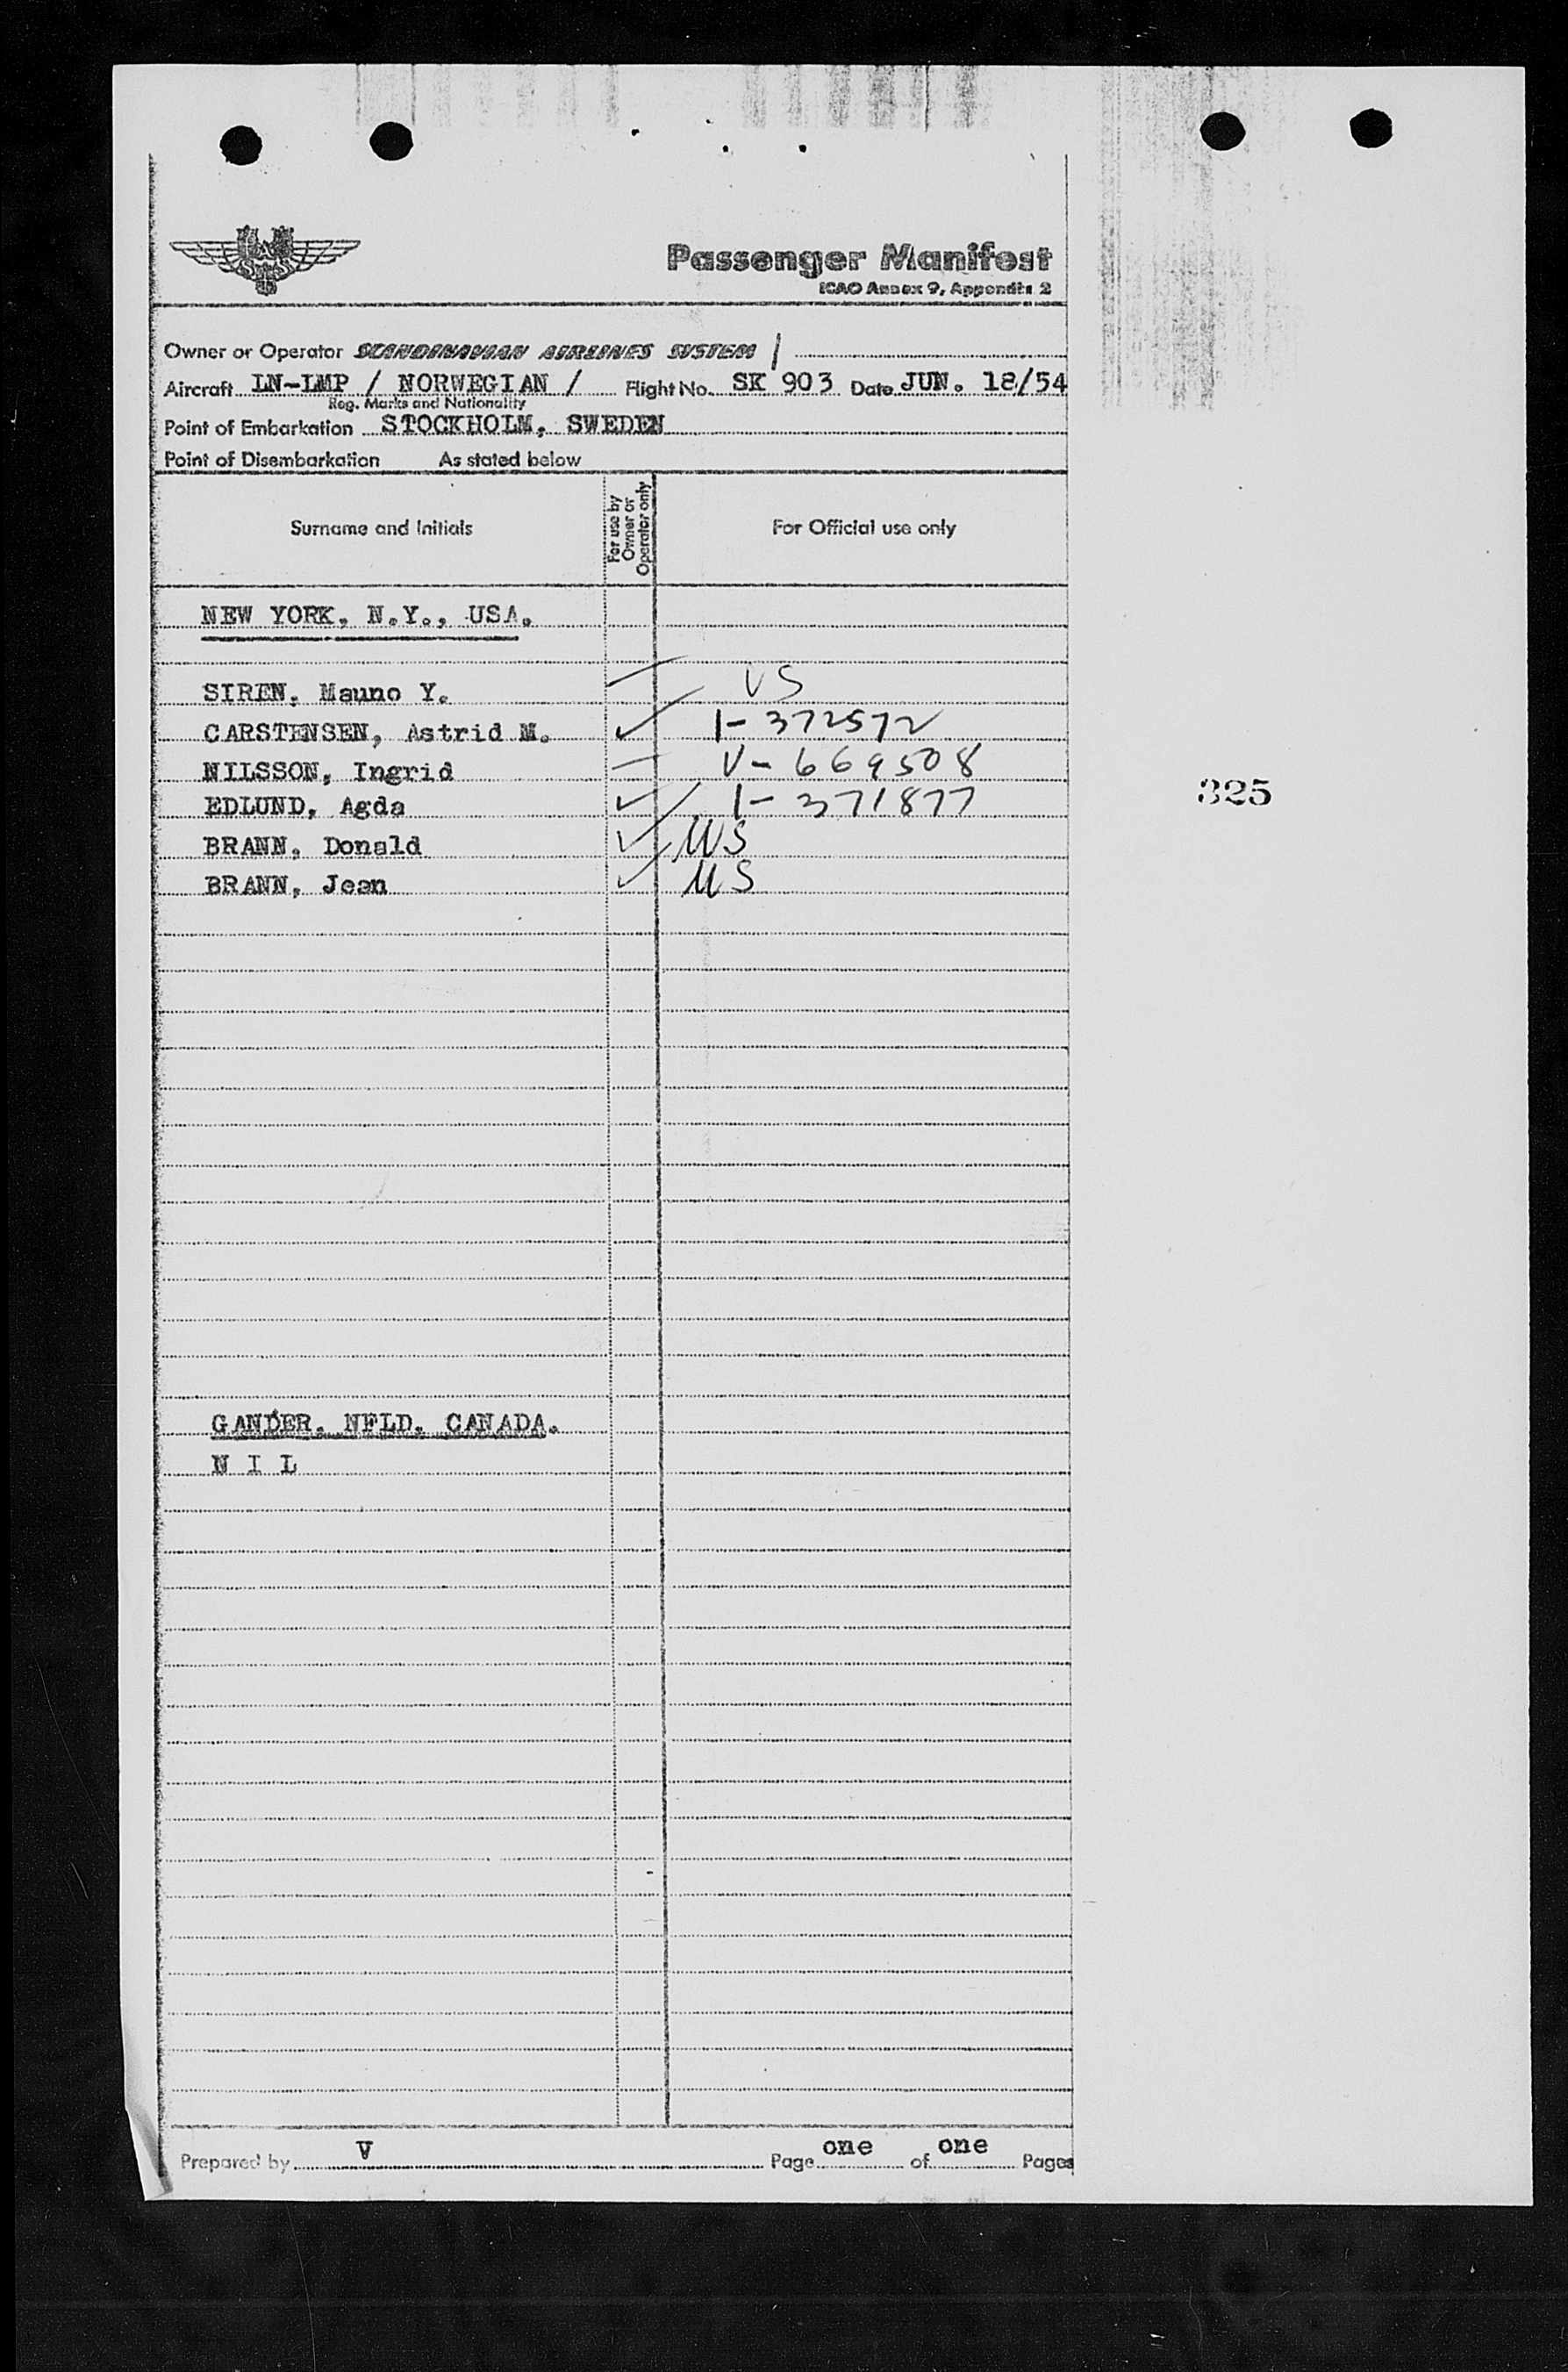 SAS
Passenger Manifest
ICAO Annex 9, Appendix 2
Owner or Operator SCANDINAVIAN AIRLINES SYSTEM /
Aircraft LN-LMP / NORWEGIAN / Flight No. SK 903 Date JUN. 18/54
Reg. Marks and Nationality
Point of Embarkation STOCKHOLM, SWEDEN
Point of Disembarkation As stated below
Surname and Initials For use by Owner or Operator only For Official use only
NEW YORK, N.Y., USA.
SIREN, Mauno Y. US
CARSTENSEN, Astrid M. ✓ I-372572
NILSSON, Ingrid V-669508
EDLUND, Agda ✓ I-371877
BRANN, Donald ✓ US
BRANN, Jean ✓ US
325
GANDER, NFLD. CANADA.
N I L
Prepared by V Page one of one Pages